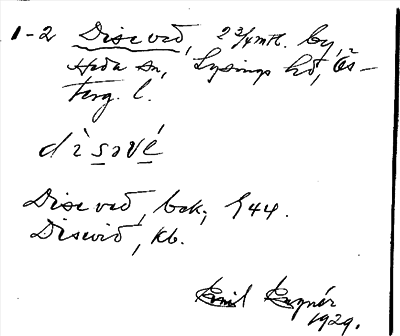 1-2 Disevid, 2 3/4 mtl. by,
Heda sn, Lysings hd, Ös-
terg. l.
dì sǝvé
Disevid, bok; 1/944.
Disevid, kb.
Emil
1929.